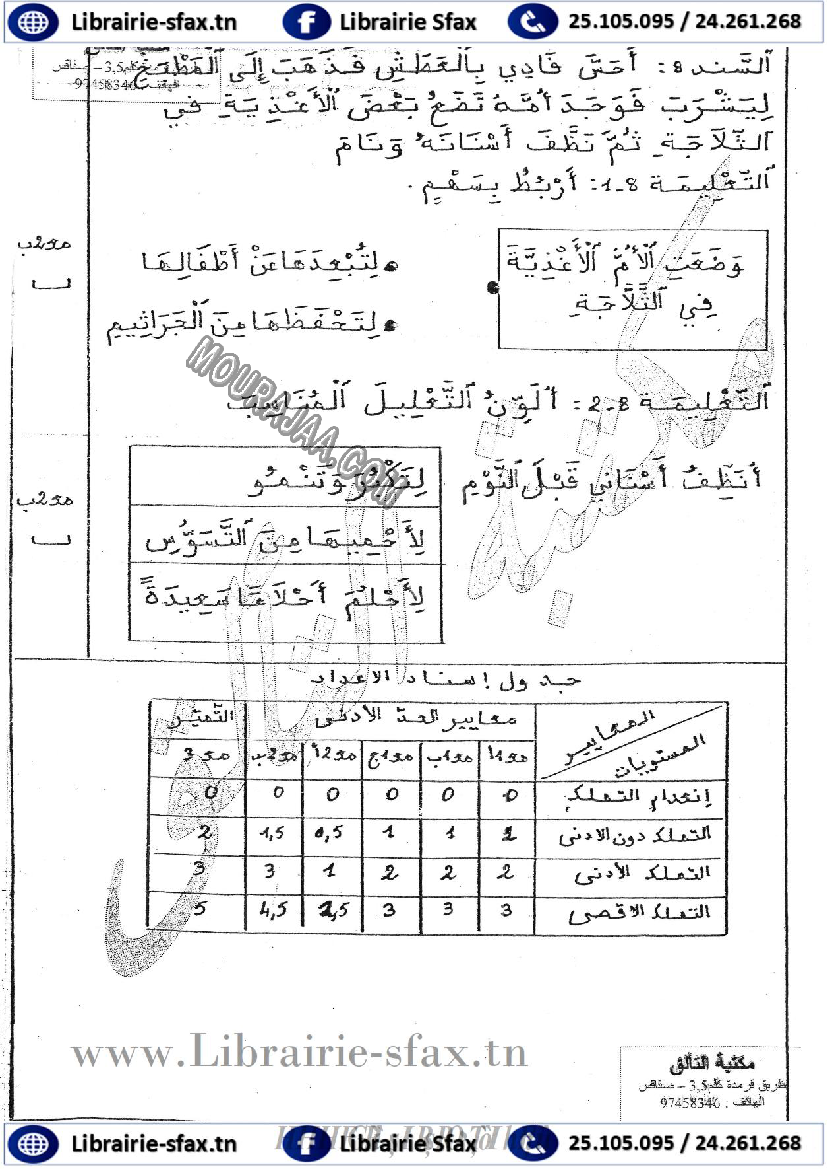 Librairie-sfax.tn Librairie Sfax 25.105.095 / 24.261.268
97458346
اَلسَّند 8: أَحَسَّ فَادِي بِالْعَطَشِ فَذَهَبَ إِلَى الْمَطْبَخِ
لِيَشْرَبَ فَوَجَدَ أُمَّهُ تَضَعُ بَعْضَ الْأَغْذِيَةِ فِي
الثَّلَّاجَةِ ثُمَّ نَظَّفَ أَسْنَانَهُ وَنَامَ
التَّعْلِيمَة 8-1: أَرْبُطُ بِسَهْمٍ.
مع2ب
وَضَعَتِ الْأُمُّ الْأَغْذِيَةَ
فِي الثَّلَّاجَةِ
لِتُبْعِدَهَا عَنْ أَطْفَالِهَا
لِتَحْفَظَهَا مِنَ الْجَرَاثِيمِ
MOURAJAA.COM
التَّعْلِيمَة 8-2: أُلَوِّنُ التَّعْلِيلَ الْمُنَاسِبَ
مع2ب
أُنَظِّفُ أَسْنَانِي قَبْلَ النَّوْمِ
لِتَكْبُرَ وَتَنْمُو
لِأَحْمِيهَا مِنَ التَّسَوُّسِ
لِأَحْلُمَ أَحْلَامًا سَعِيدَةً
جدول إسناد الأعداد
المعايير معايير الحد الأدنى التميّز
المستويات مع1أ مع1ب مع1ج مع2أ مع2ب مع3
إنعدام التملك 0 0 0 0 0 0
التملك دون الادنى 1 1 1 0,5 1,5 2
التملك الأدنى 2 2 2 1 3 3
التملك الاقصى 3 3 3 1,5 4,5 5
www.Librairie-sfax.tn
مكتبة التألق
طريق قرمدة كلم 3,5 – صفاقس
الهاتف : 97458346
Librairie-sfax.tn Librairie Sfax 25.105.095 / 24.261.268